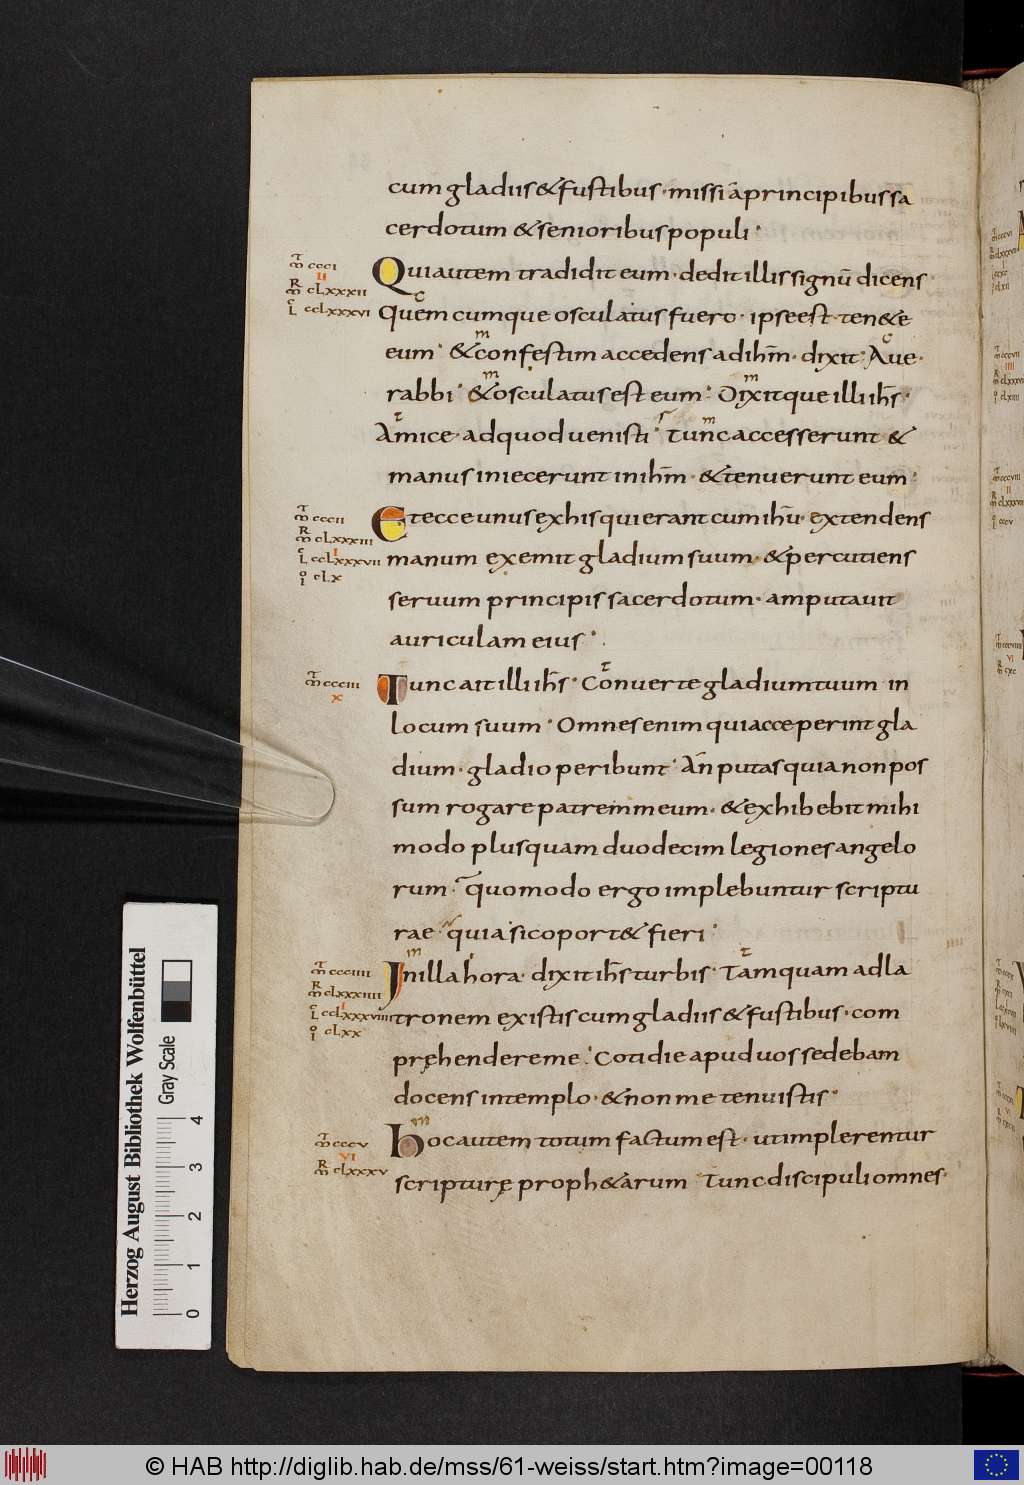 cum gladiis & fustibus · missi a principibus sa
cerdotum & senioribus populi ·
Qui autem tradidit eum · dedit illis signū dicens
Quem cumque osculatus fuero · ipse est · ten&e
eum · & confestim accedens ad ihm̄ · dixit · Aue ·
rabbi · & osculatus est eum · Dixitque illi ihs̄ ·
Amice · ad quod uenisti · Tunc accesserunt &
manus iniecerunt in ihm̄ · & tenuerunt eum ·
Et ecce unus ex his qui erant cum ihū · extendens
manum exemit gladium suum · & percutiens
seruum principis sacerdotum · amputauit
auriculam eius ·
Tunc ait illi ihs̄ · Conuerte gladium tuum in
locum suum · Omnes enim qui acceperint gla
dium · gladio peribunt · An putas quia non pos
sum rogare patrem meum · & exhibebit mihi
modo plus quam duodecim legiones angelo
rum · quomodo ergo implebuntur scriptu
rae · quia sic oport& fieri ·
In illa hora · dixit ihs̄ turbis · Tamquam ad la
tronem existis cum gladiis & fustibus · com
pręhendere me · Cotidie apud uos sedebam
docens in templo · & non me tenuistis ·
Hoc autem totum factum est · ut implerentur
scripturę proph&arum Tunc discipuli omnes ·
ccci
II
cLxxxii
ccLxxxvi
cccii
cLxxxiii
I
ccLxxxvii
cLx
ccciii
x
ccciiii
cLxxxiiii
I
ccLxxxviiii
cLxx
cccv
VI
cLxxxv
Herzog August Bibliothek Wolfenbüttel
Gray Scale
0 1 2 3 4
© HAB http://diglib.hab.de/mss/61-weiss/start.htm?image=00118